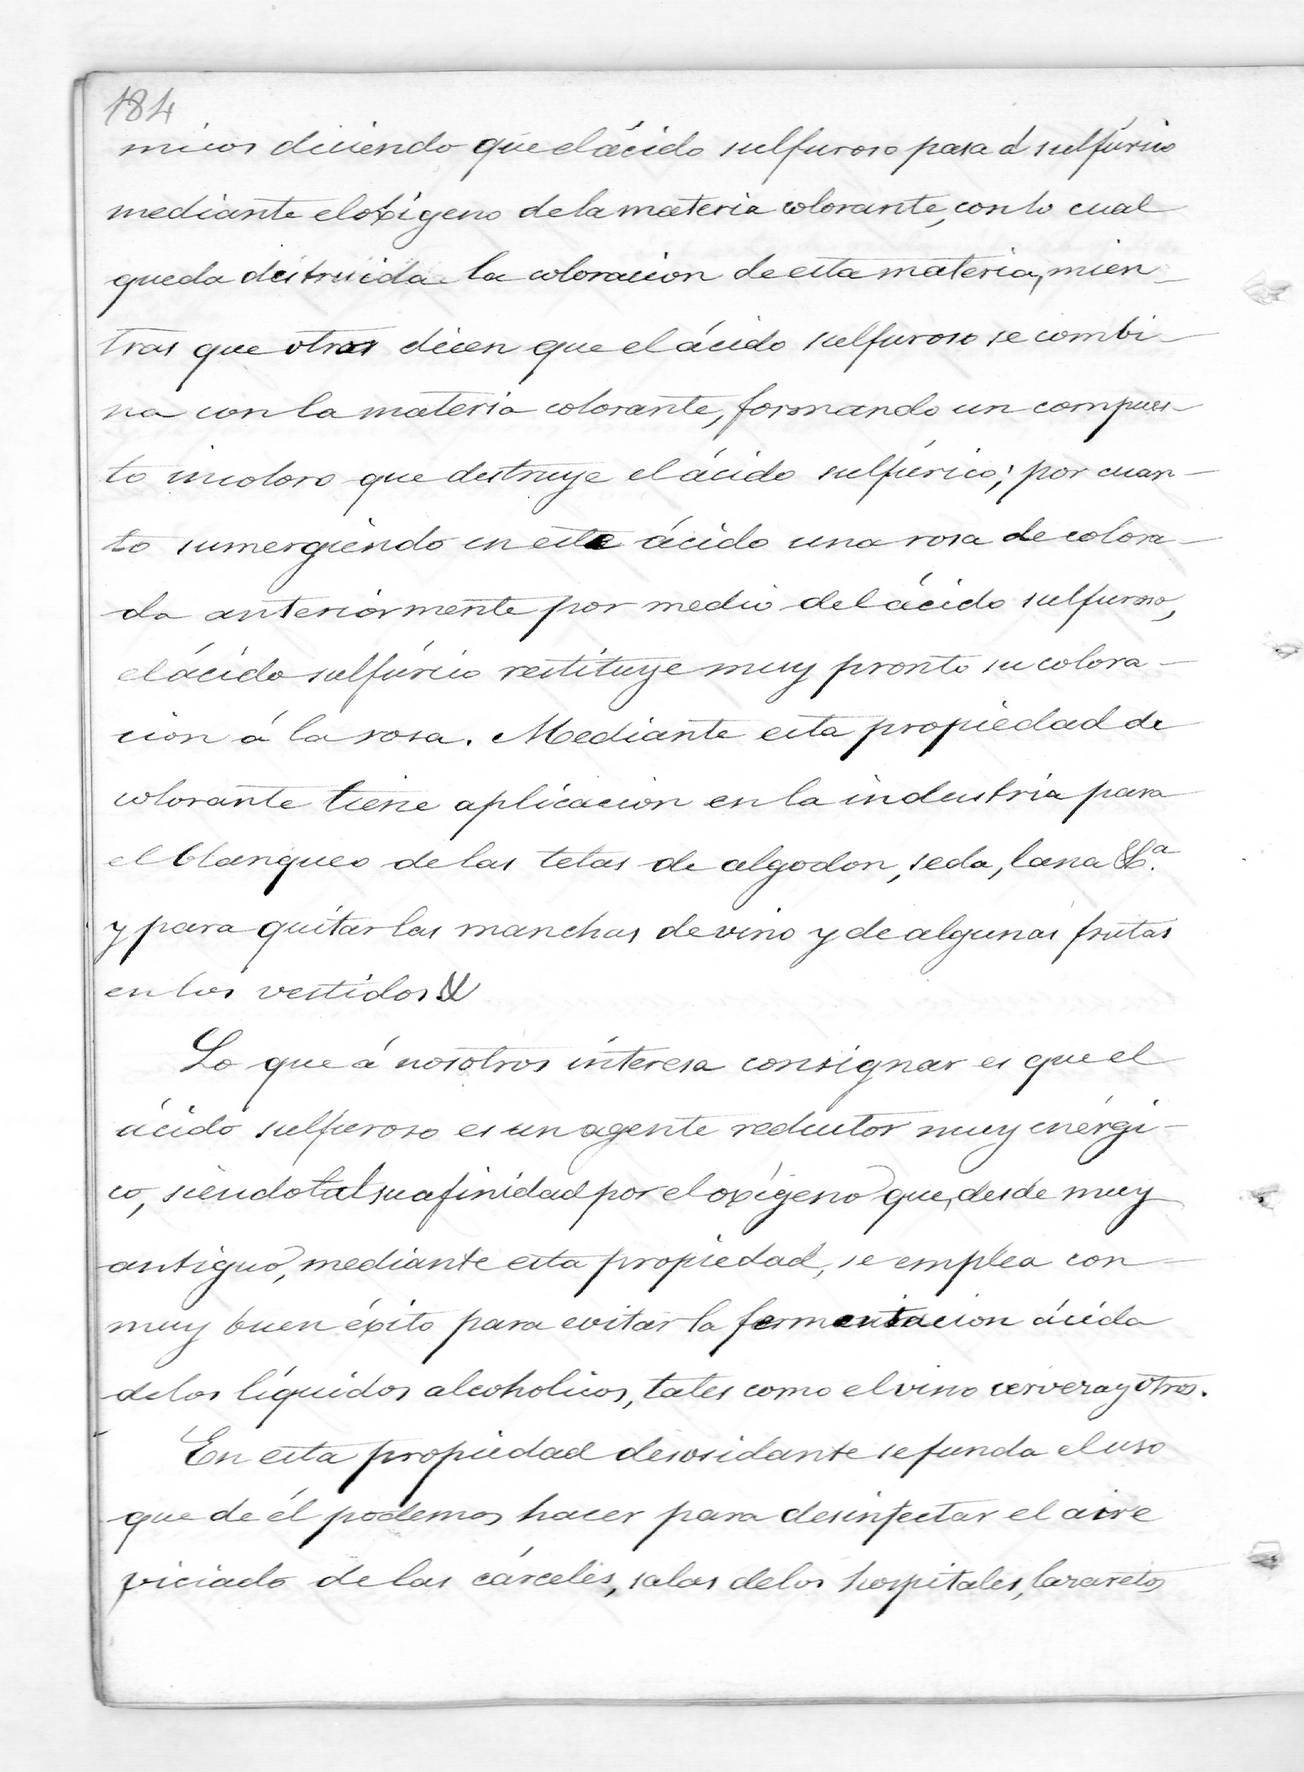 184
micos diciendo que el ácido sulfuroso pasa á sulfúrico
mediante el oxígeno de la materia colorante, con lo cual
queda destruida la coloracion de esta materia, mien-
tras que otros dicen que el ácido sulfuroso se combi-
na con la materia colorante, formando un compues-
to incoloro que destruye el ácido sulfúrico; por cuan-
to sumergiendo en este ácido una rosa decolora-
da anteriormente por medio del ácido sulfuroso,
el ácido sulfúrico restituye muy pronto su colora-
cion á la rosa. Mediante esta propiedad de
colorante tiene aplicacion en la industria para
el blanqueo de las telas de algodon, seda, lana &.ª
y para quitar las manchas de vino y de algunas frutas
en los vestidos &
Lo que á nosotros interesa consignar es que el
ácido sulfuroso es un agente reductor muy enérgi-
co, siendo tal su afinidad por el oxígeno que, desde muy
antiguo, mediante esta propiedad, se emplea con
muy buen éxito para evitar la fermentacion ácida
de los líquidos alcoholicos, tales como el vino cerveza y otros.
En esta propiedad desosidante se funda el uso
que de él podemos hacer para desinfectar el aire
viciado de las cárceles, salas de los hospitales, lazaretos